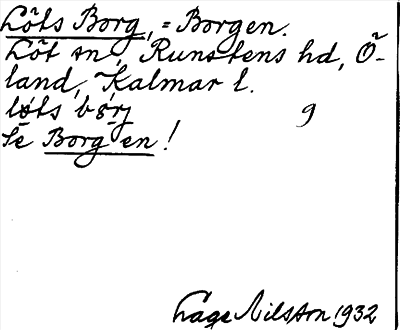 Löts Borg, = Borgen.
Löt sn, Runstens hd, Ö-
land, Kalmar l.
løts bǫrj 9
Se Borgen!
Lage Nilsson 1932